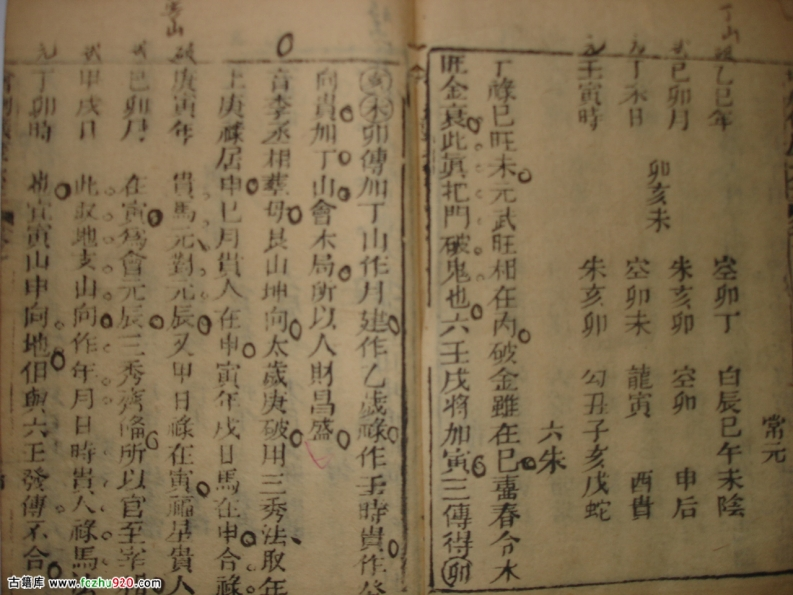 丁山破 乙巳年
武 己卯月
九 丁未日
元 壬寅時
卯亥未
空卯丁
朱亥卯
空卯未
朱亥卯
白辰巳午未陰
空卯 申后
龍寅 酉貴
勾丑子亥戌蛇
常元
六朱
丁祿巳旺未元武旺相在內破金雖在巳喜春令木
旺金衰此眞把門破鬼也六壬戌將加寅三傳得卯
亥未卯傳加丁山作月建作乙歲祿作壬時貴作
向貴加丁山會木局所以人財昌盛
音李丞相葬母艮山坤向太歲庚破用三秀法取年
上庚祿居申巳月貴人在申寅年戌日馬在申合祿
艮山 破 庚寅年 貴馬元對元辰又甲日祿在寅福星貴人
武 己卯月 在寅爲會元辰三秀齊臨所以官至宰
武 甲戌日 此取地支山向作年月日時貴人祿馬
元 丁卯時 地宜寅山申向地但與六壬發傳不合
古籍库 www.fczhu920.com